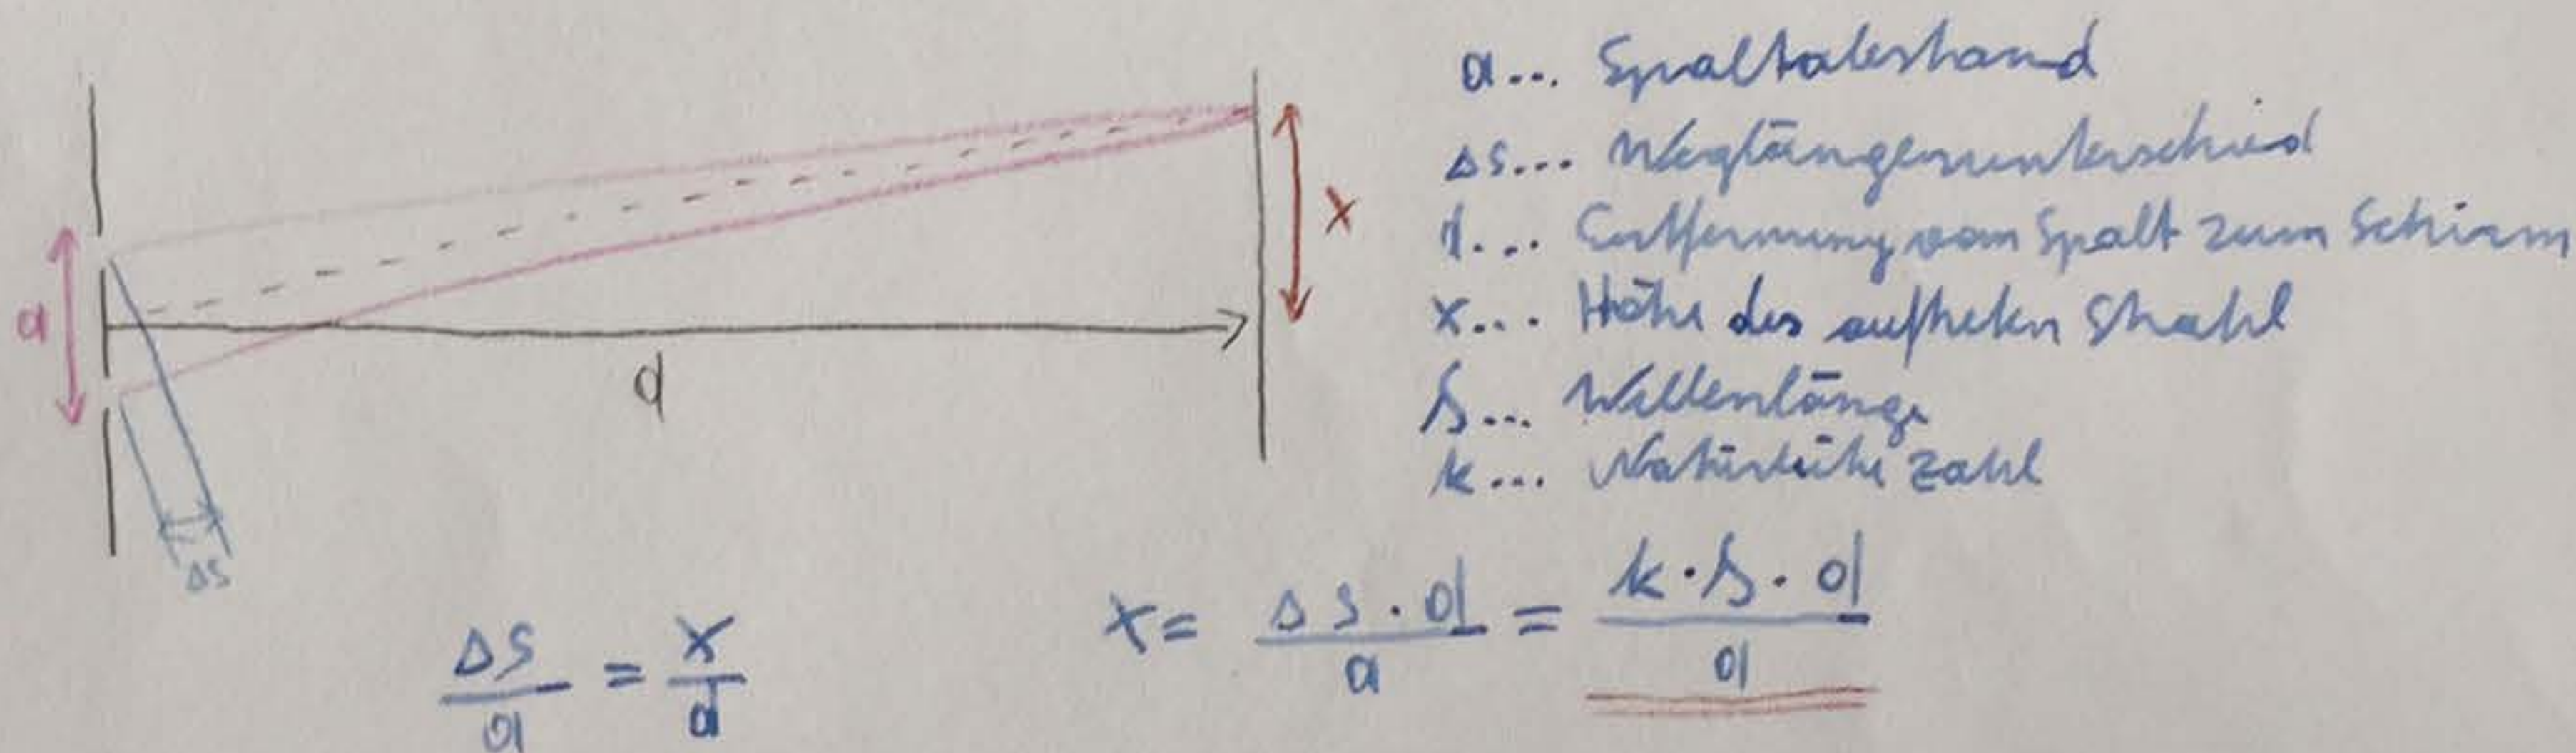 a... Spaltabstand
Δs... Weglängenunterschied
d... Entfernung vom Spalt zum Schirm
x... Höhe des
Strahl
λ... Wellenlänge
k... Natürliche Zahl
a
x
d
Δs
Δs/a = x/d
x = Δs·d/a = k·λ·d/a